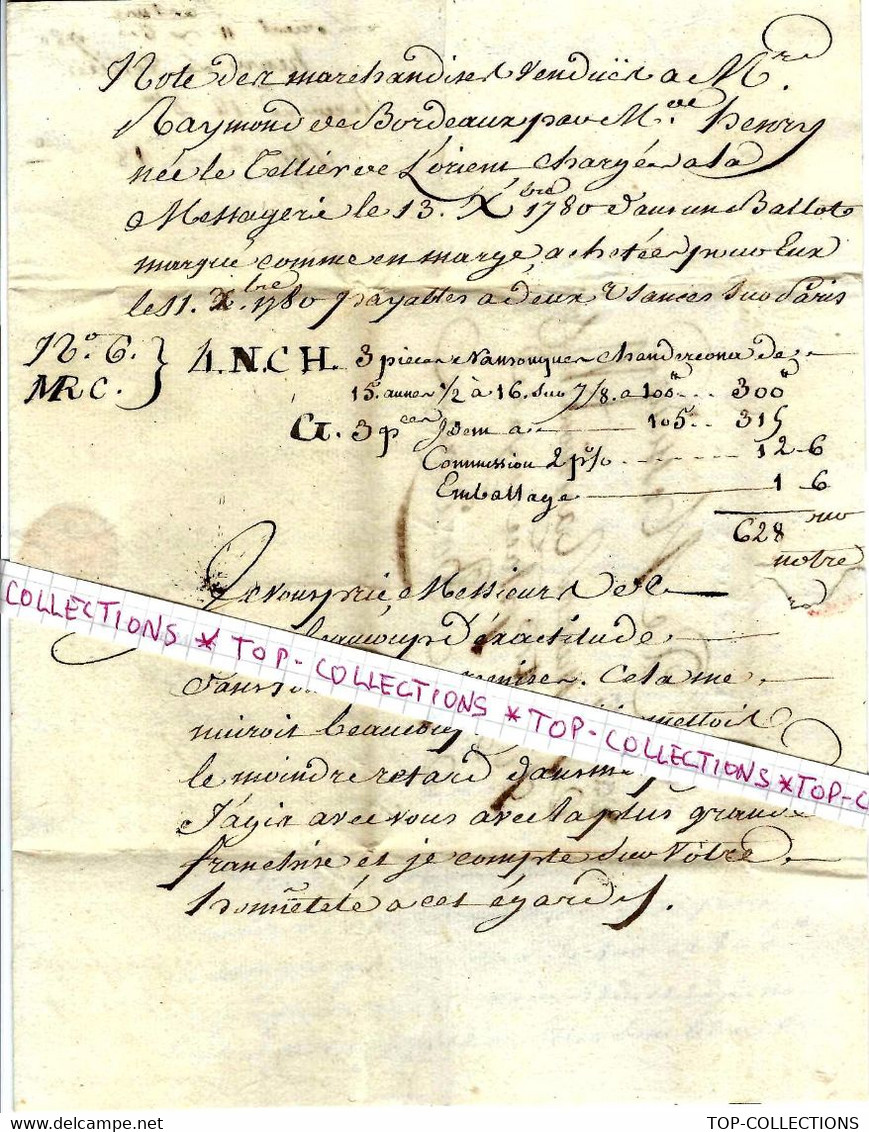 Note des marchandises vendües a M.rs
Raymond de Bordeaux par M.de ve henry
née le Tellier de L'orient chargées a la
Messagerie le 13. Xbre 1780 dans un Ballot
marqué comme en marge, achetées pour Eux
le 11. Xbre 1780 payables a deux Usances sur Paris
No. 6. } 4.N.C H. 3 pieces Nansouques Chandercona de
MRC. 15. aunes 1/2 à 16. sur 7/8. a 100# .. 300#
G. 3 p.ces Idem a 105 .. 315
Commission 2 p% 12-6
Emballage 1 6
628
notre
Je vous prie, Messieurs de
beaucoup d'éxactitude
dans remises. Cela me
nuiroit beaucoup mettoit
le moindre retard dans
J'agis avec vous avec la plus grande
franchise et je compte sur Votre
honnêteté a cet égard
COLLECTIONS * TOP-COLLECTIONS * TOP-COLLECTIONS * TOP-C
TOP-COLLECTIONS